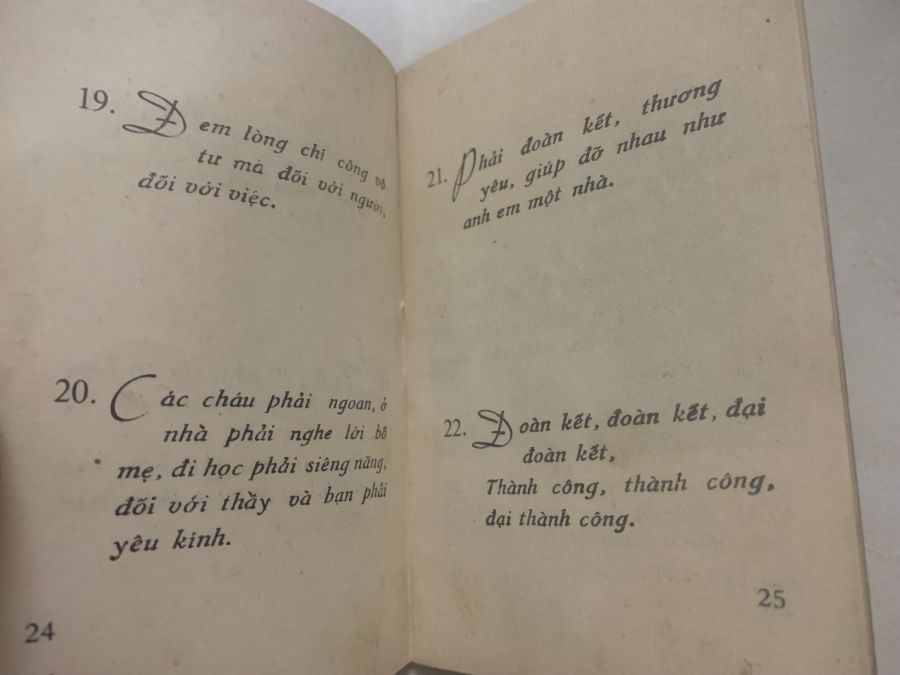 19. Đem lòng chí công vô
tư mà đối với người,
đối với việc.
20. Các cháu phải ngoan, ở
nhà phải nghe lời bố
mẹ, đi học phải siêng năng,
đối với thầy và bạn phải
yêu kính.
24
21. Phải đoàn kết, thương
yêu, giúp đỡ nhau như
anh em một nhà.
22. Đoàn kết, đoàn kết, đại
đoàn kết,
Thành công, thành công,
đại thành công.
25